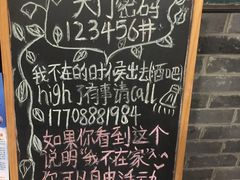 大门密码
123456#
我不在的时候出去酒吧
high了有事请call
17708881984
如果你看到这个
说明"我不在家"
你可以自由活动